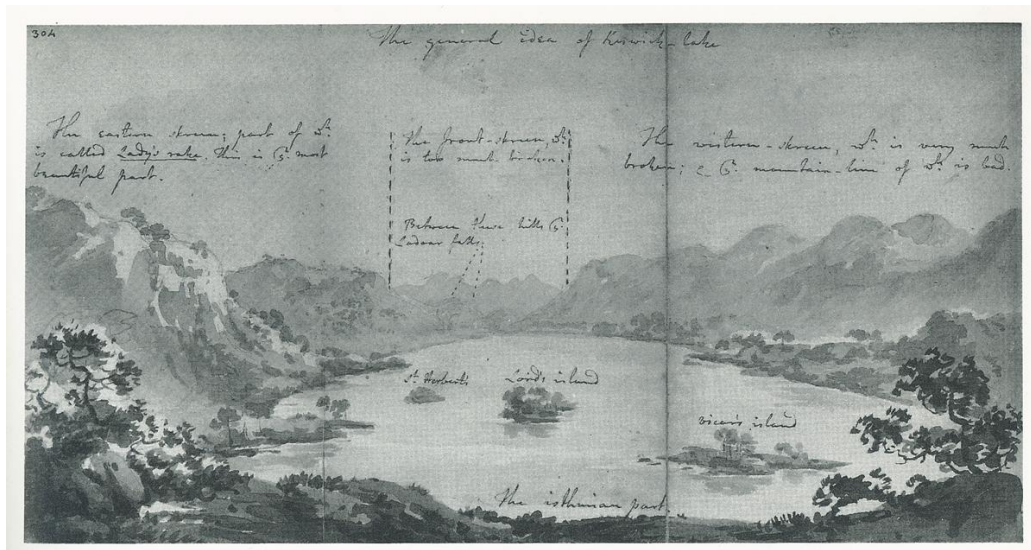 304
The general idea of Keswick-lake
The eastern-skreen; part of wh.
is called Lady's rake. This is ye. most
beautiful part.
The front-skreen, wh.
is too much broken.
Between these hills ye.
Lodoar falls.
The western-skreen, wh. is very much
broken; & ye. mountain-line of wh. is bad.
St. Herbert's
Lord's island
vicar's island
The isthmian part.